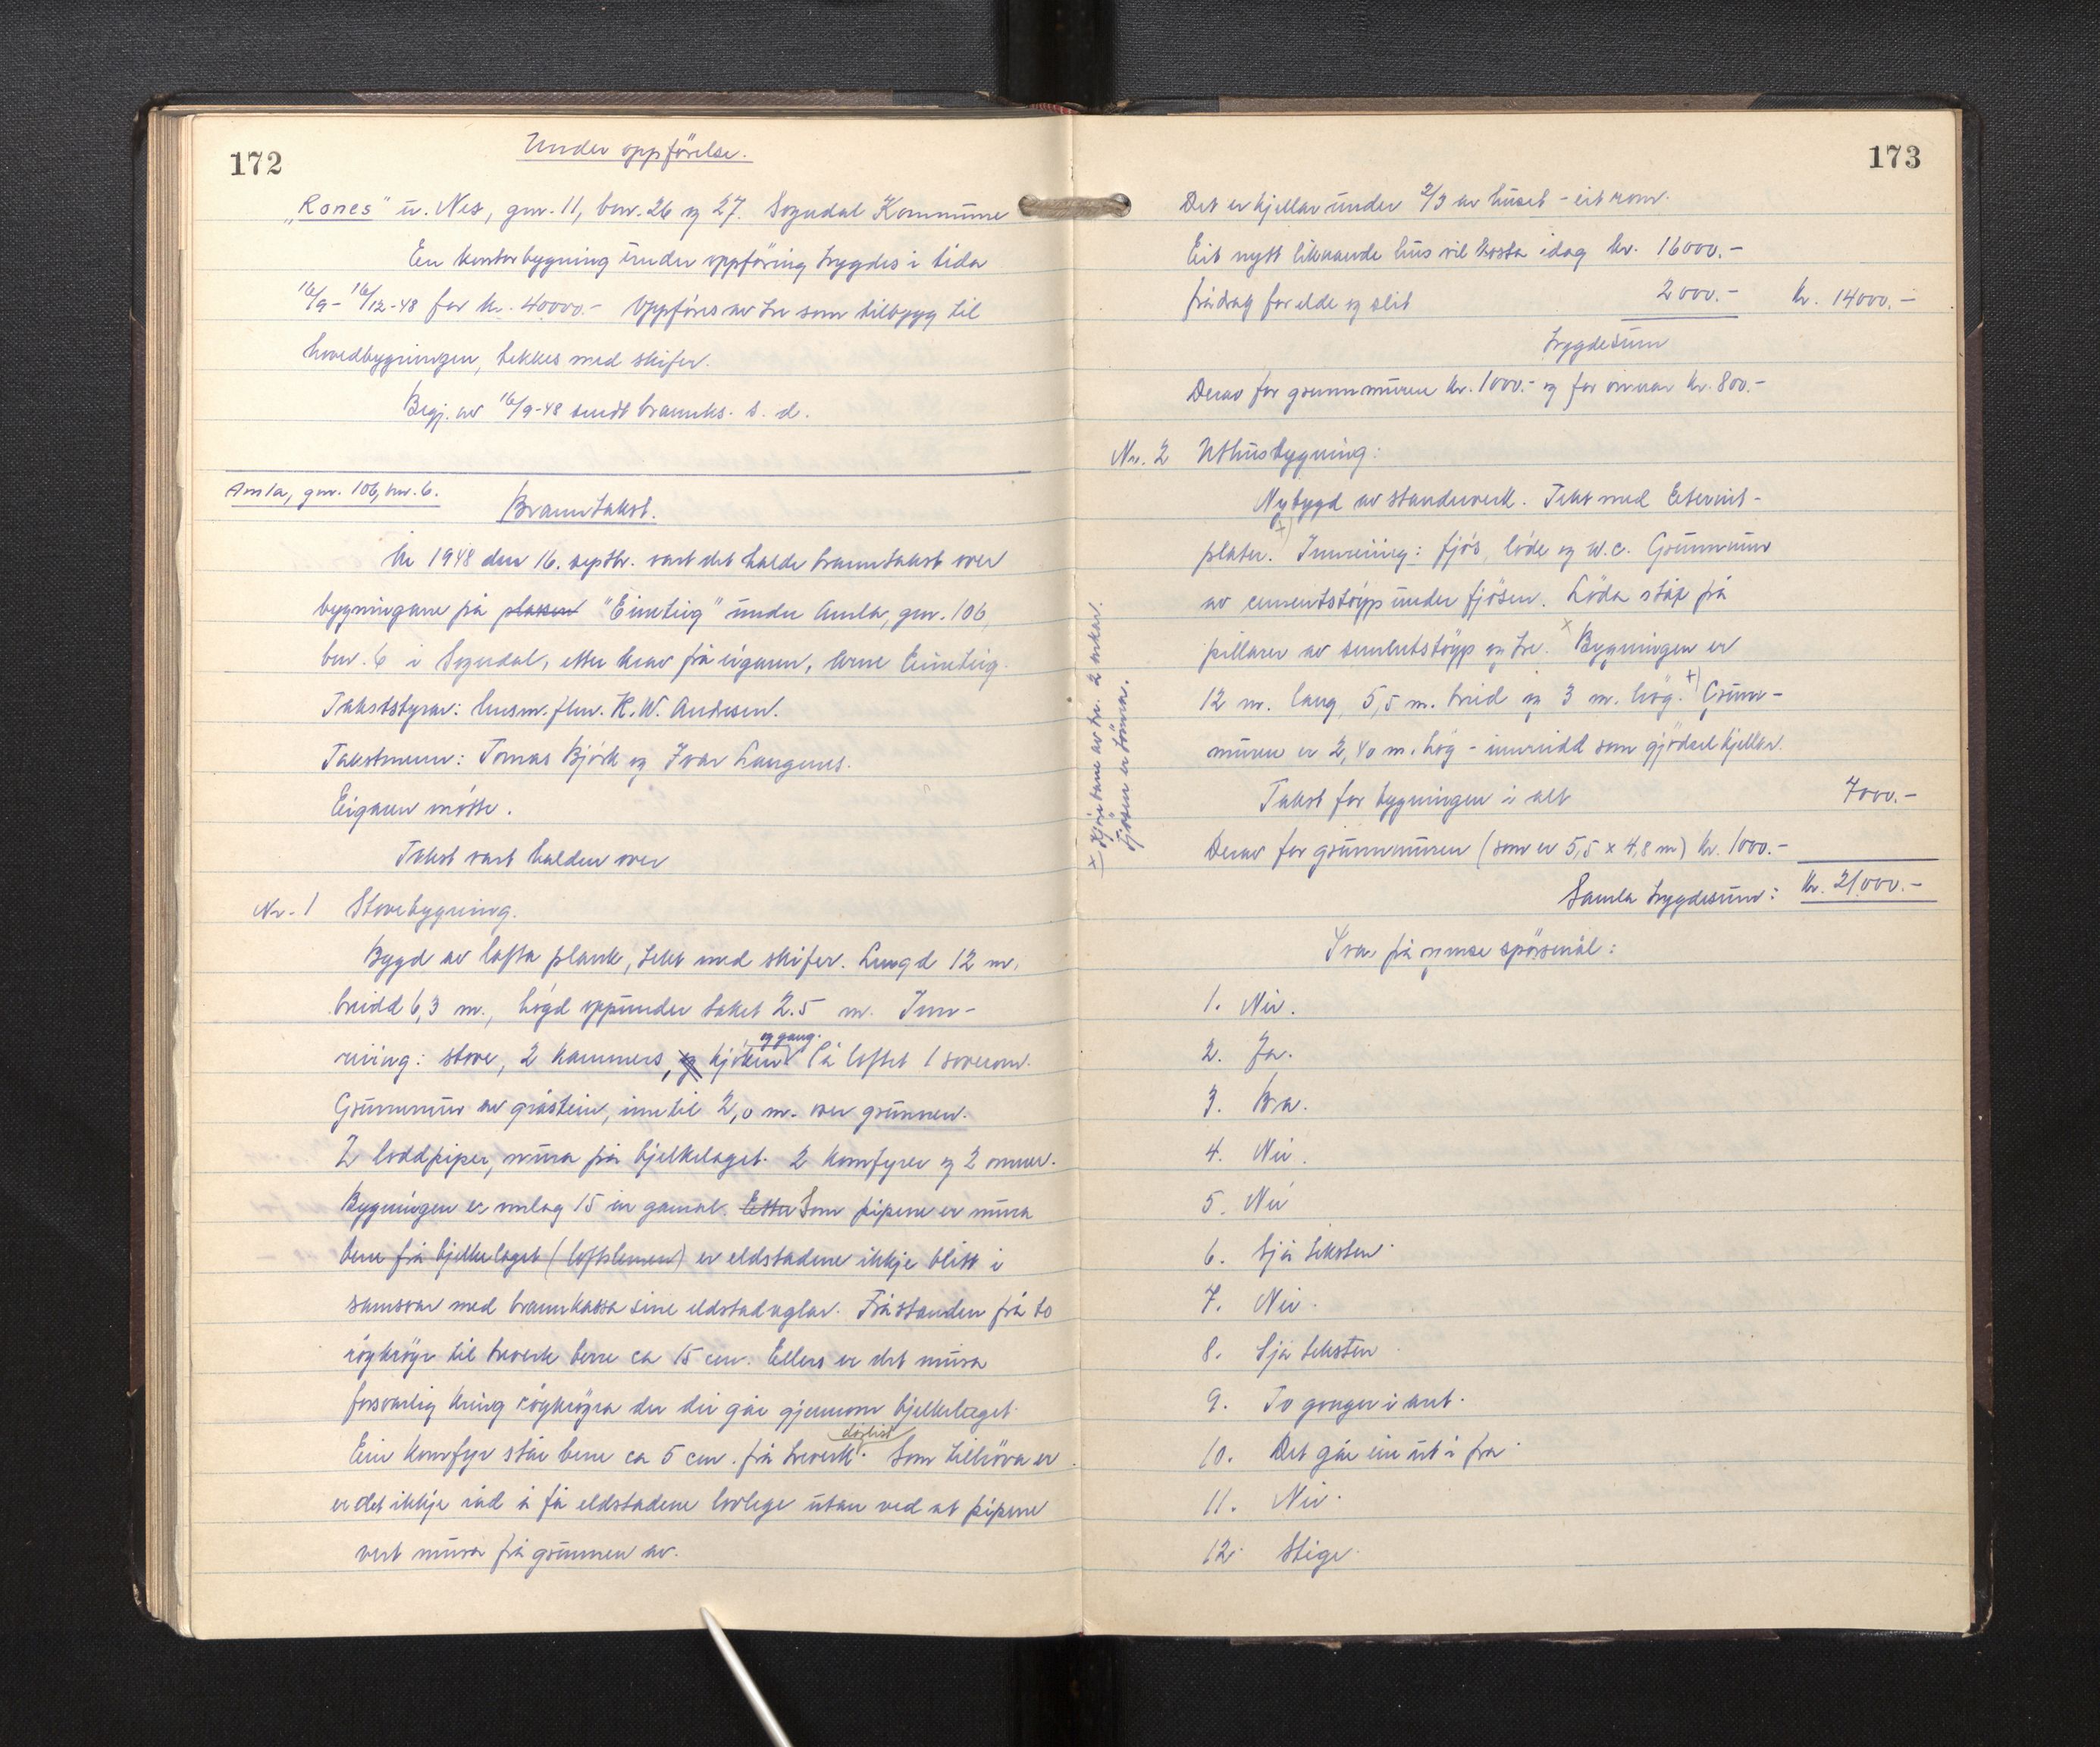 172
Under oppförelse.
"Rones" u. Nes, gnr. 11, bnr. 26 og 27. Sogndal Kommune
En kontorbygning under oppföring trygdes i tida
16/9 - 16/12-48 for kr. 40000.- Oppföres av tre som tilbygg til
hovedbygningen, tekkes med skifer.
Begj. av 16/9-48 sendt brannks. s. d.
Amla, gnr. 106, bnr. 6.
Branntakst.
År 1948 den 16. septbr. vart det halde branntakst over
bygningane på plassen "Eineteig" under Amla, gnr. 106,
bnr. 6 i Sogndal, etter krav frå eigaren, Arne Eineteig.
Takststyrar: lensm. flm. K. W. Andresen.
Takstmenn: Tomas Björk og Ivar Laugnes.
Eigaren mötte.
Takst vart halden over
Nr. 1 Stovebygning.
Bygd av lafta plank, tekt med skifer. Lengd 12 m.
breidd 6,3 m., högd oppunder taket 2.5 m. Inn-
reiing: stove, 2 kammers, og kjöken, og gang. På loftet 1 soverom.
Grunnmur av gråstein, inntil 2,0 m. over grunnen.
2 loddpiper, mura på bjelkelaget. 2 komfyrer og 2 omner.
Bygningen er omlag 15 år gamal. Etter Som pipene er mura
berre frå bjelkelaget (loftslemen) er eldstadene ikkje blitt i
samsvar med brannkassa sine eldstadreglar. Fråstanden frå to
röykröyr til treverk berre ca 15 cm. Ellers er det mura
forsvarlig kring röykröyra der dei går gjennom bjelkelaget.
Ein komfyr står berre ca 5 cm. frå treverk dörlist. Som tilhöva er
er det ikkje råd å få eldstadene lovlege utan ved at pipene
vert mura frå grunnen av.
173
Det er kjellar under 2/3 av huset - eit rom.
Eit nytt liknande hus vil kosta idag kr. 16000.-
frådrag for elde og slit 2000.- kr. 14000.-
trygdesum
Derav for grunnmuren kr. 1000.- og for omnar kr. 800.-
Nr. 2 Uthusbygning:
Nybygd av standerverk. Tekt med Eternit-
plater. +) Innreiing: fjös, löde og w.c. Grunnmur
av cementstöyp under fjösen. Löda står på
pillarer av sementstöyp og tre. x Bygningen er
12 m. lang, 5,5 m. breid og 3 m. hög. +) Grunn-
muren er 2,40 m. hög - innreidd som gjödselkjellar.
Takst for bygningen i alt 7000.-
Derav for grunnmuren (som er 5,5 x 4,8 m) kr. 1000.-
Samla trygdesum: kr. 21000.-
x Fjösen er tömra.
Svar på ymse spörsmål:
1. Nei.
2. Ja.
3. Bra.
4. Nei.
5. Nei
6. Sjå teksten.
7. Nei.
8. Sjå teksten
9. To gonger i året.
10. Det går ein ut i frå.
11. Nei.
12. Stige.